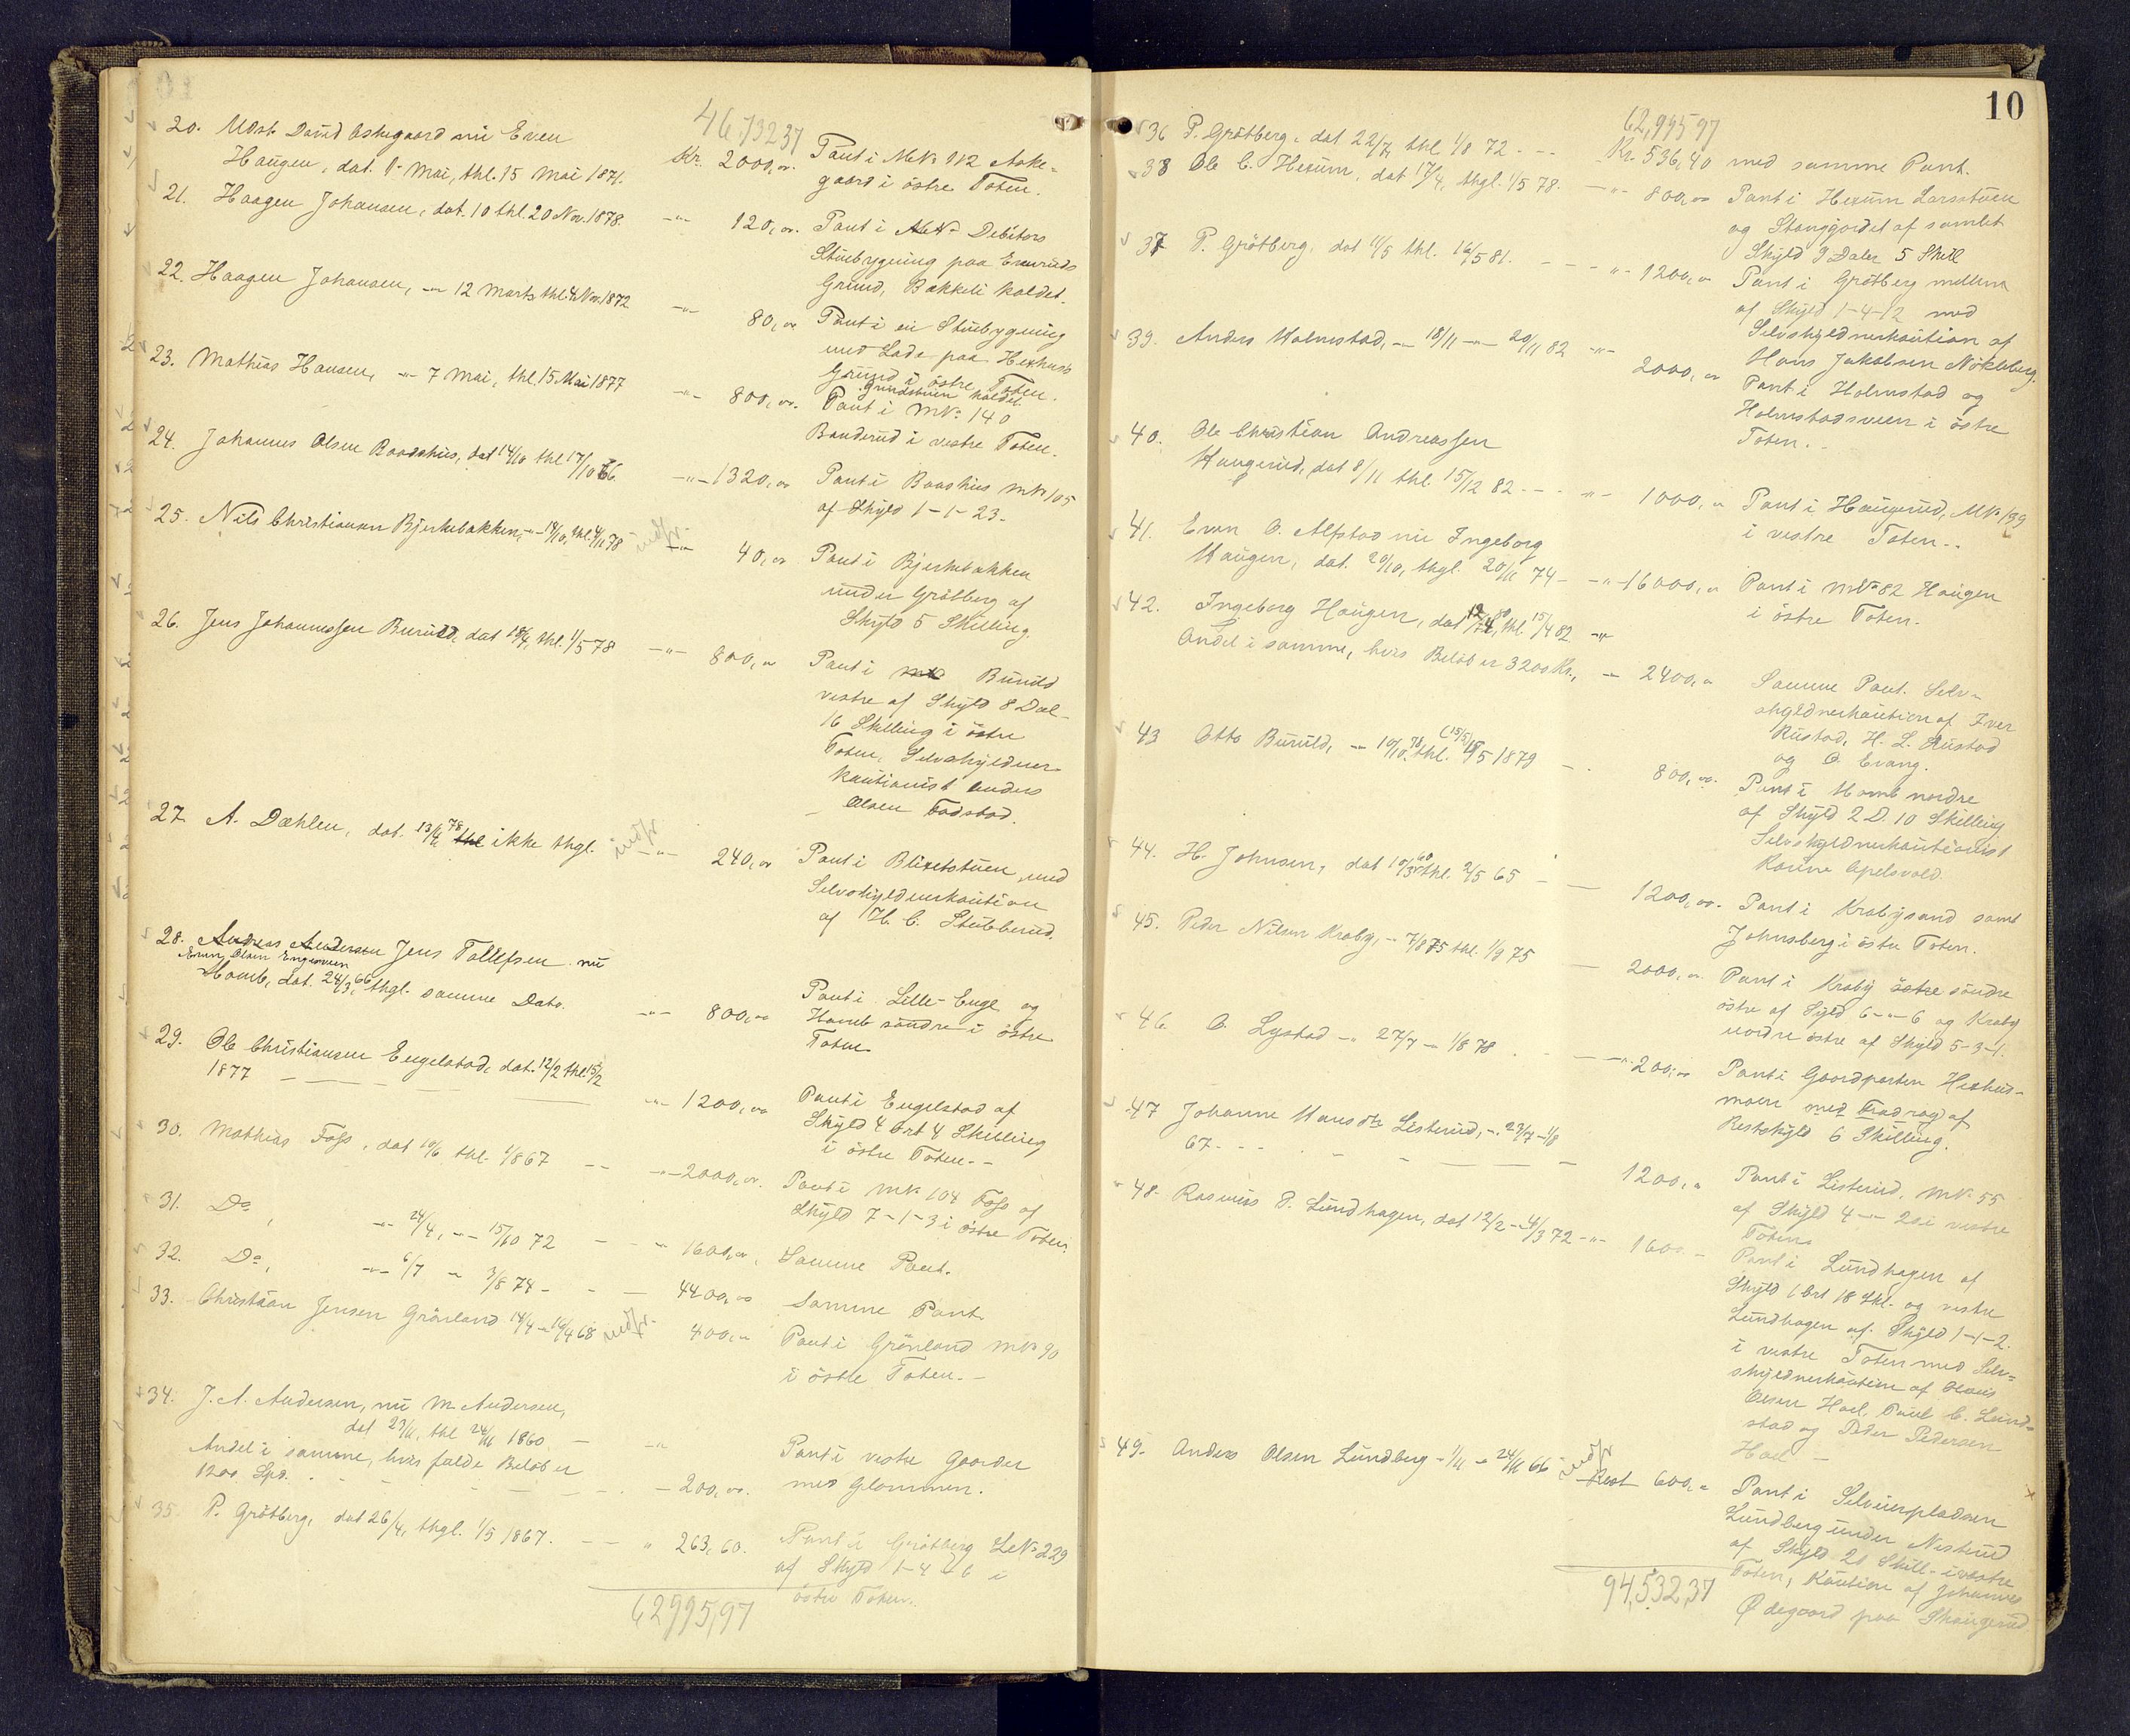 46,732,37
20. Udst. David Askegaard nu Even
Haugen, dat. 1. Mai, thl. 15 Mai 1871.
Kr. 2000,00.
Pant i M.No 912 Aske-
gaard i östre Toten.
21. Haagen Johansen, dat. 10 thl. 20 Nov. 1878.
-"- 120,00.
Pant i Debitors
Stuebygning paa
Grund, Bakkeli kaldet.
22. Haagen Johansen, -"- 12 Marts thl. 4 Nov. 1872
-"- 80,00
Pant i en Stuebygning
med Lade paa Hexhus
Grund i östre Toten.
Grundstuen kaldet.
23. Mathias Hansen, -"- 7 Mai, thl. 15 Mai 1877
-"- 800,00.
Pant i MNo. 140
Banderud i vestre Toten.
24. Johannes Olsen Raadshus, dat 14/10 thl 17/10 66.
-"- 1320,00
Pant i MNo 105
af Skyld 1-1-23.
25. Nils Christiansen Bjerkebakken, -"- 14/10, thl. 4/11 78
indfr.
-"- 40,00
Pant i Bjerkebakken
under Gråtberg af
Skyld 5 Skilling.
26. Jens Johannessen Buruld, dat 18/4, thl. 1/5 78
-"- 800,00
Pant i Buruld
vestre af Skyld 8 Dal-
16 Skilling i östre
Toten, Selvskyldner-
kautionist Anders
Olsen Fodstad.
27. A. Dæhlen, dat. 13/4 78 thl ikke thgl.
indfr.
-"- 240,00
Pant i Blixetstuen med
Selvskyldnerkaution
af H. C. Stubberud.
28. Andreas Andersen Jens Tollefsen nu
Even Olsen Engeveen
Homb, dat. 24/3 66, thgl. samme Dato.
-"- 800,00
Pant i Lille-Enge og
Homb söndre i östre
Toten
29. Ole Christiansen Engelstad, dat. 12/2 thl. 15/2
1877
-"- 1200,00
Pant i Engelstad af
Skyld 4 Ort 4 Skilling
i östre Toten.--
30. Mathias Foss, dat 10/6 thl. 1/8 67
-"- 2000,00.
Pant i MNo 104 Foss af
Skyld 7-1-3 i östre Toten.
31. Do, -"- 24/4, -"- 15/10 72
-"- 1600,00,
Samme Pant.
32. Do, -"- 6/7 -"- 3/8 74
4400,00
Samme Pant.
33. Christian Jensen Grönland 14/4 -"- 16/4 68
indfr.
400,00
Pant i Grönland MNo 90
i östre Toten.-
34. J. A. Andersen, nu M. Andersen,
dat 23/11, thl 24/11 1860.
Andel i samme, hvis fulde Belöb er
1200 Spd.
- 200,00.
Pant i vestre Gaarder
med Glommen.
35. P. Gråtberg, dat 26/4, thgl. 1/5 1867.
" 263,60.
Pant i Gråtberg LNo 229
af Skyld 1-4-6 i
östre Toten.
62995,97
10
62,995,97
36 P. Gråtberg, dat 22/7 thl 1/8 72
Kr. 536,40
med samme Pant.
38 Ole C. Hexum, dat 17/4, thgl. 1/5 78.
-"- 800,00
Pant i Hexum Larsstuen
og Stangjordet af samlet
Skyld 3 Daler 5 Skill
37 P. Gråtberg, dat 11/5 thl. 16/5 81.
-"- 1200,00
Pant i Gråtberg mellem
af Skyld 1-4-12 med
Selvskyldnerkaution af
Hans Jakobsen Nökleby.
39. Anders Holmstad, -"- 18/11 -"- 20/11 82
-"- 2000,00
Pant i Holmstad og
Holmstadsveen i östre
Toten.-
40. Ole Christian Andreassen
Haugerud, dat 8/11 thl. 15/12 82
-"- 1000,00
Pant i Haugerud, MNo 199
i vestre Toten--
41. Even O. Alfstad nu Ingeborg
Haugen, dat. 20/10, thgl. 20/11 74
-"- 16000,00
Pant i MNo 82 Haugen
i östre Toten.
42. Ingeborg Haugen, dat 12/4 80, thl. 15/4 82
Andel i samme, hvis Belöb er 3200 Kr.,
- 2400,00
Samme Pant. Selv-
skyldnerkaution af Iver
Rustad, H. L. Rustad
og O. Evang.
43 Otto Buruld, -"- 10/10 78 thl. 15/5 1879
800,00.
Pant i Homb nordre
af Skyld 2 D. 10 Skilling
Selvskyldnerkautionist
Apelsvold.
44. H. Johnsen, dat 10/3 60 thl. 2/5 65
1200,00.
Pant i Krabysand samt
Johnsberg i östre Toten.
45. Peder Nilsen Kraby, -"- 7/8 75 thl. 1/9 75
2000,00
Pant i Kraby östre söndre
östre af Skyld 6-"-6 og Kraby
nordre östre af Skyld 5-3-1.
46. O. Lystad -"- 27/7 -"- 1/8 78
-"- 200,00
Pant i Gaardparten Hexhus-
moen med Fradrag af
Restskyld 6 Skilling.
47 Johanne Hansdtr Listerud, -"- 23/7 - 1/8
67
1200,00
Pant i Listerud, MNo 55
af Skyld 4-"-20 i vestre
Toten.
48. Rasmus P. Lundhagen, dat 12/2 -"- 4/3 72
-"- 1600 -
Pant i Lundhagen af
Skyld 1 Ort 18 Skl. og vestre
Lundhagen af Skyld 1-1-2.
i vestre Toten med Selv-
skyldnerkaution af Hans
Olsen Hoel, Paul C. Lund-
stad og Peder Pedersen
Hoel -
49. Anders Olsen Lundberg - 1/11 -"- 24/11 66
indfr
Rest 600,00
Pant i Selveierpladsen
Lundberg under Nesterud
af Skyld 20 Skill. i vestre
Toten, Kaution af Johannes
Ødegaard paa Skaugerud
94,532,37